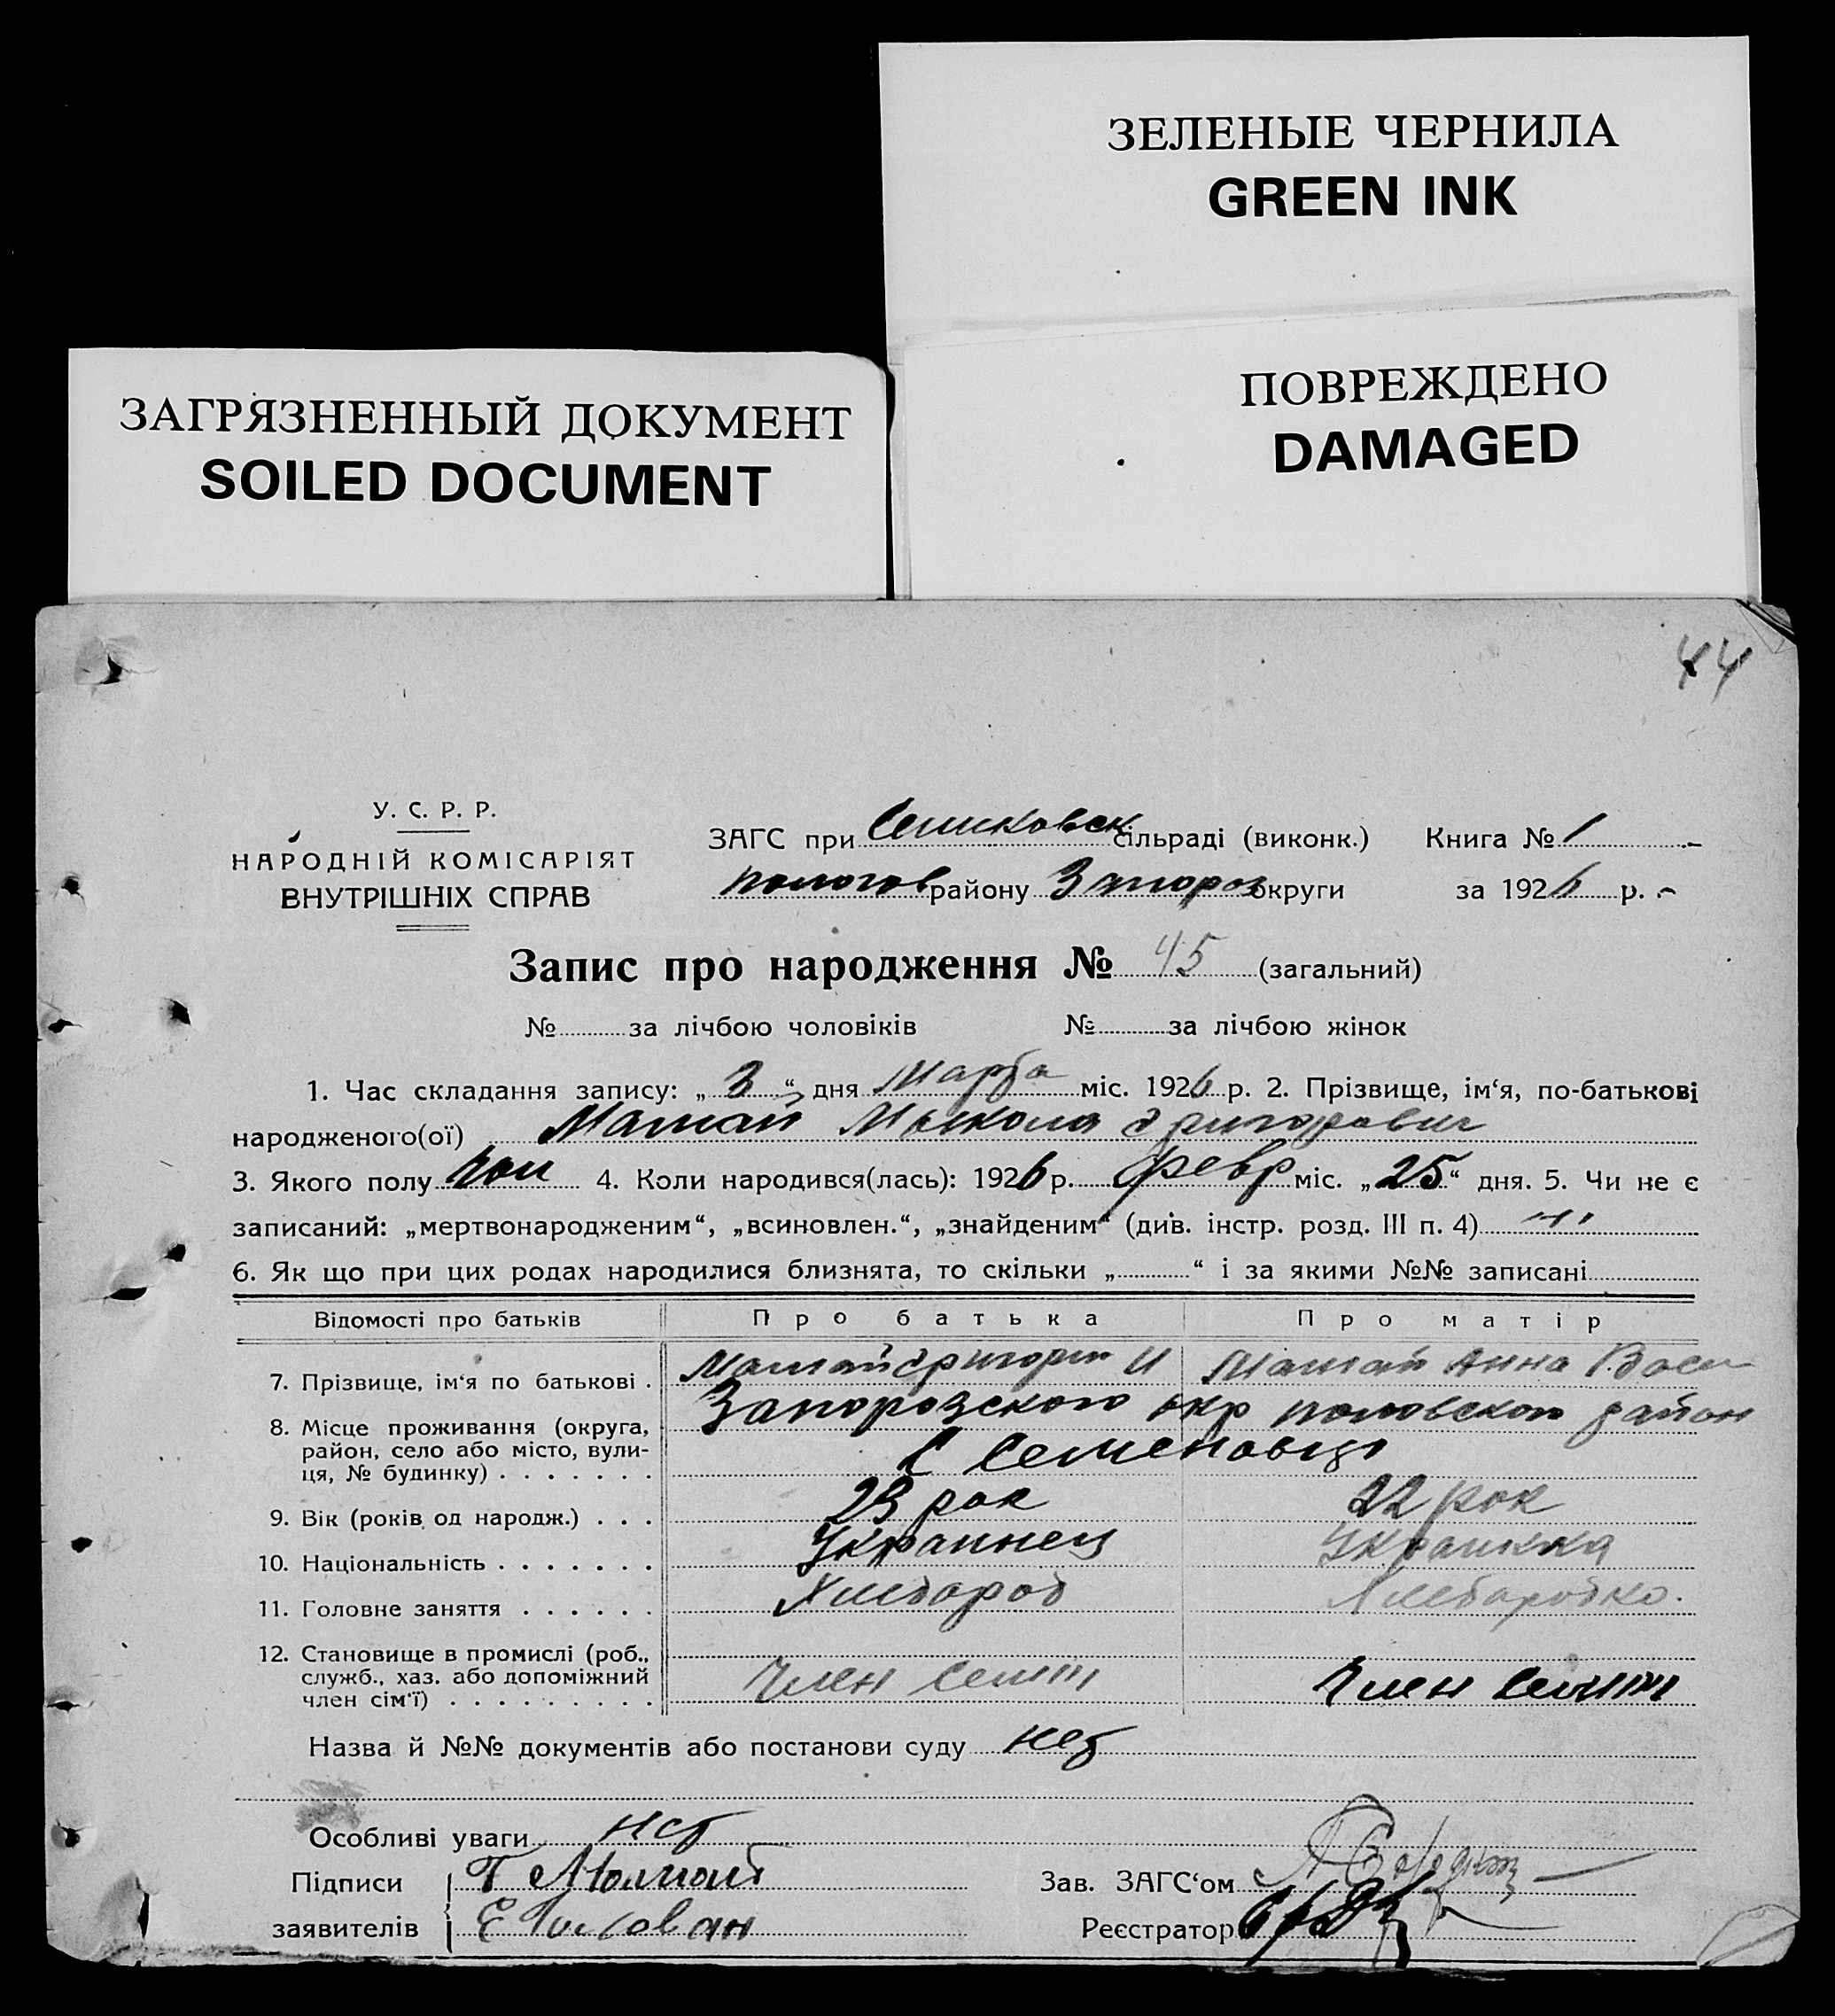 ЗЕЛЕНЫЕ ЧЕРНИЛА
GREEN INK
ПОВРЕЖДЕНО
DAMAGED
ЗАГРЯЗНЕННЫЙ ДОКУМЕНТ
SOILED DOCUMENT
44
У. С. Р. Р.
НАРОДНІЙ КОМІСАРІЯТ
ВНУТРІШНІХ СПРАВ
ЗАГС при сільраді (виконк.) Книга № 1
пологов району Запороз округи за 1926 р.
Запис про народження № 45 (загальний)
№ за лічбою чоловіків № за лічбою жінок
1. Час складання запису: „ 3 “ дня Марта міс. 1926 р. 2. Прізвище, ім‘я, по-батькові
народженого(ої) Мыкола Григорович
3. Якого полу чол 4. Коли народився(лась): 1926 р. февр міс. „ 25 “ дня. 5. Чи не є
записаний: „мертвонародженим“, „всиновлен.“, „знайденим“ (див. інстр. розд. III п. 4)
6. Як що при цих родах народилися близнята, то скільки „ “ і за якими №№ записані
Відомості про батьків Про батька Про матір
7. Прізвище, ім‘я по батькові . Григори И Анна Васи
8. Місце проживання (округа, район, село або місто, вулиця, № будинку) . . . . . . . Запорозского окр район
С Семеновци
9. Вік (років од народж.) . . . 23 рок 22 рок
10. Національність . . . . . . . Украинец Украинка
11. Головне заняття . . . . . . Хлебороб
12. Становище в промислі (роб., служб., хаз. або допоміжний член сім‘ї) . . . . . . . . . Член семии Член семии
Назва й №№ документів або постанови суду нет
Особливі уваги нет
Підписи Г
Зав. ЗАГС‘ом
заявителів Е
Реєстратор